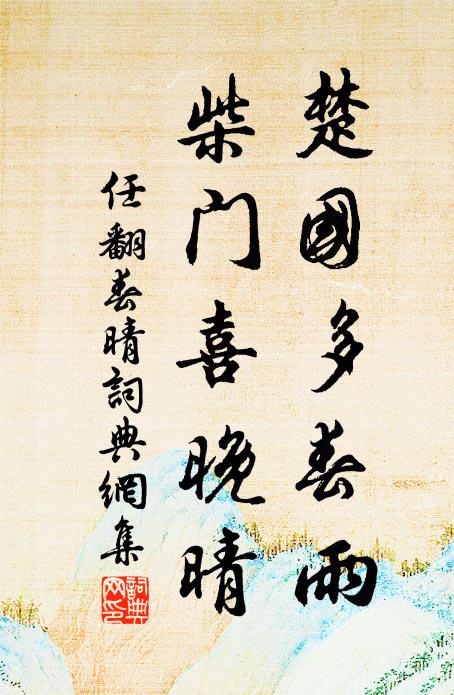 楚國多春雨
柴门喜晚晴
任翻春晴詞典網集
詞典网印